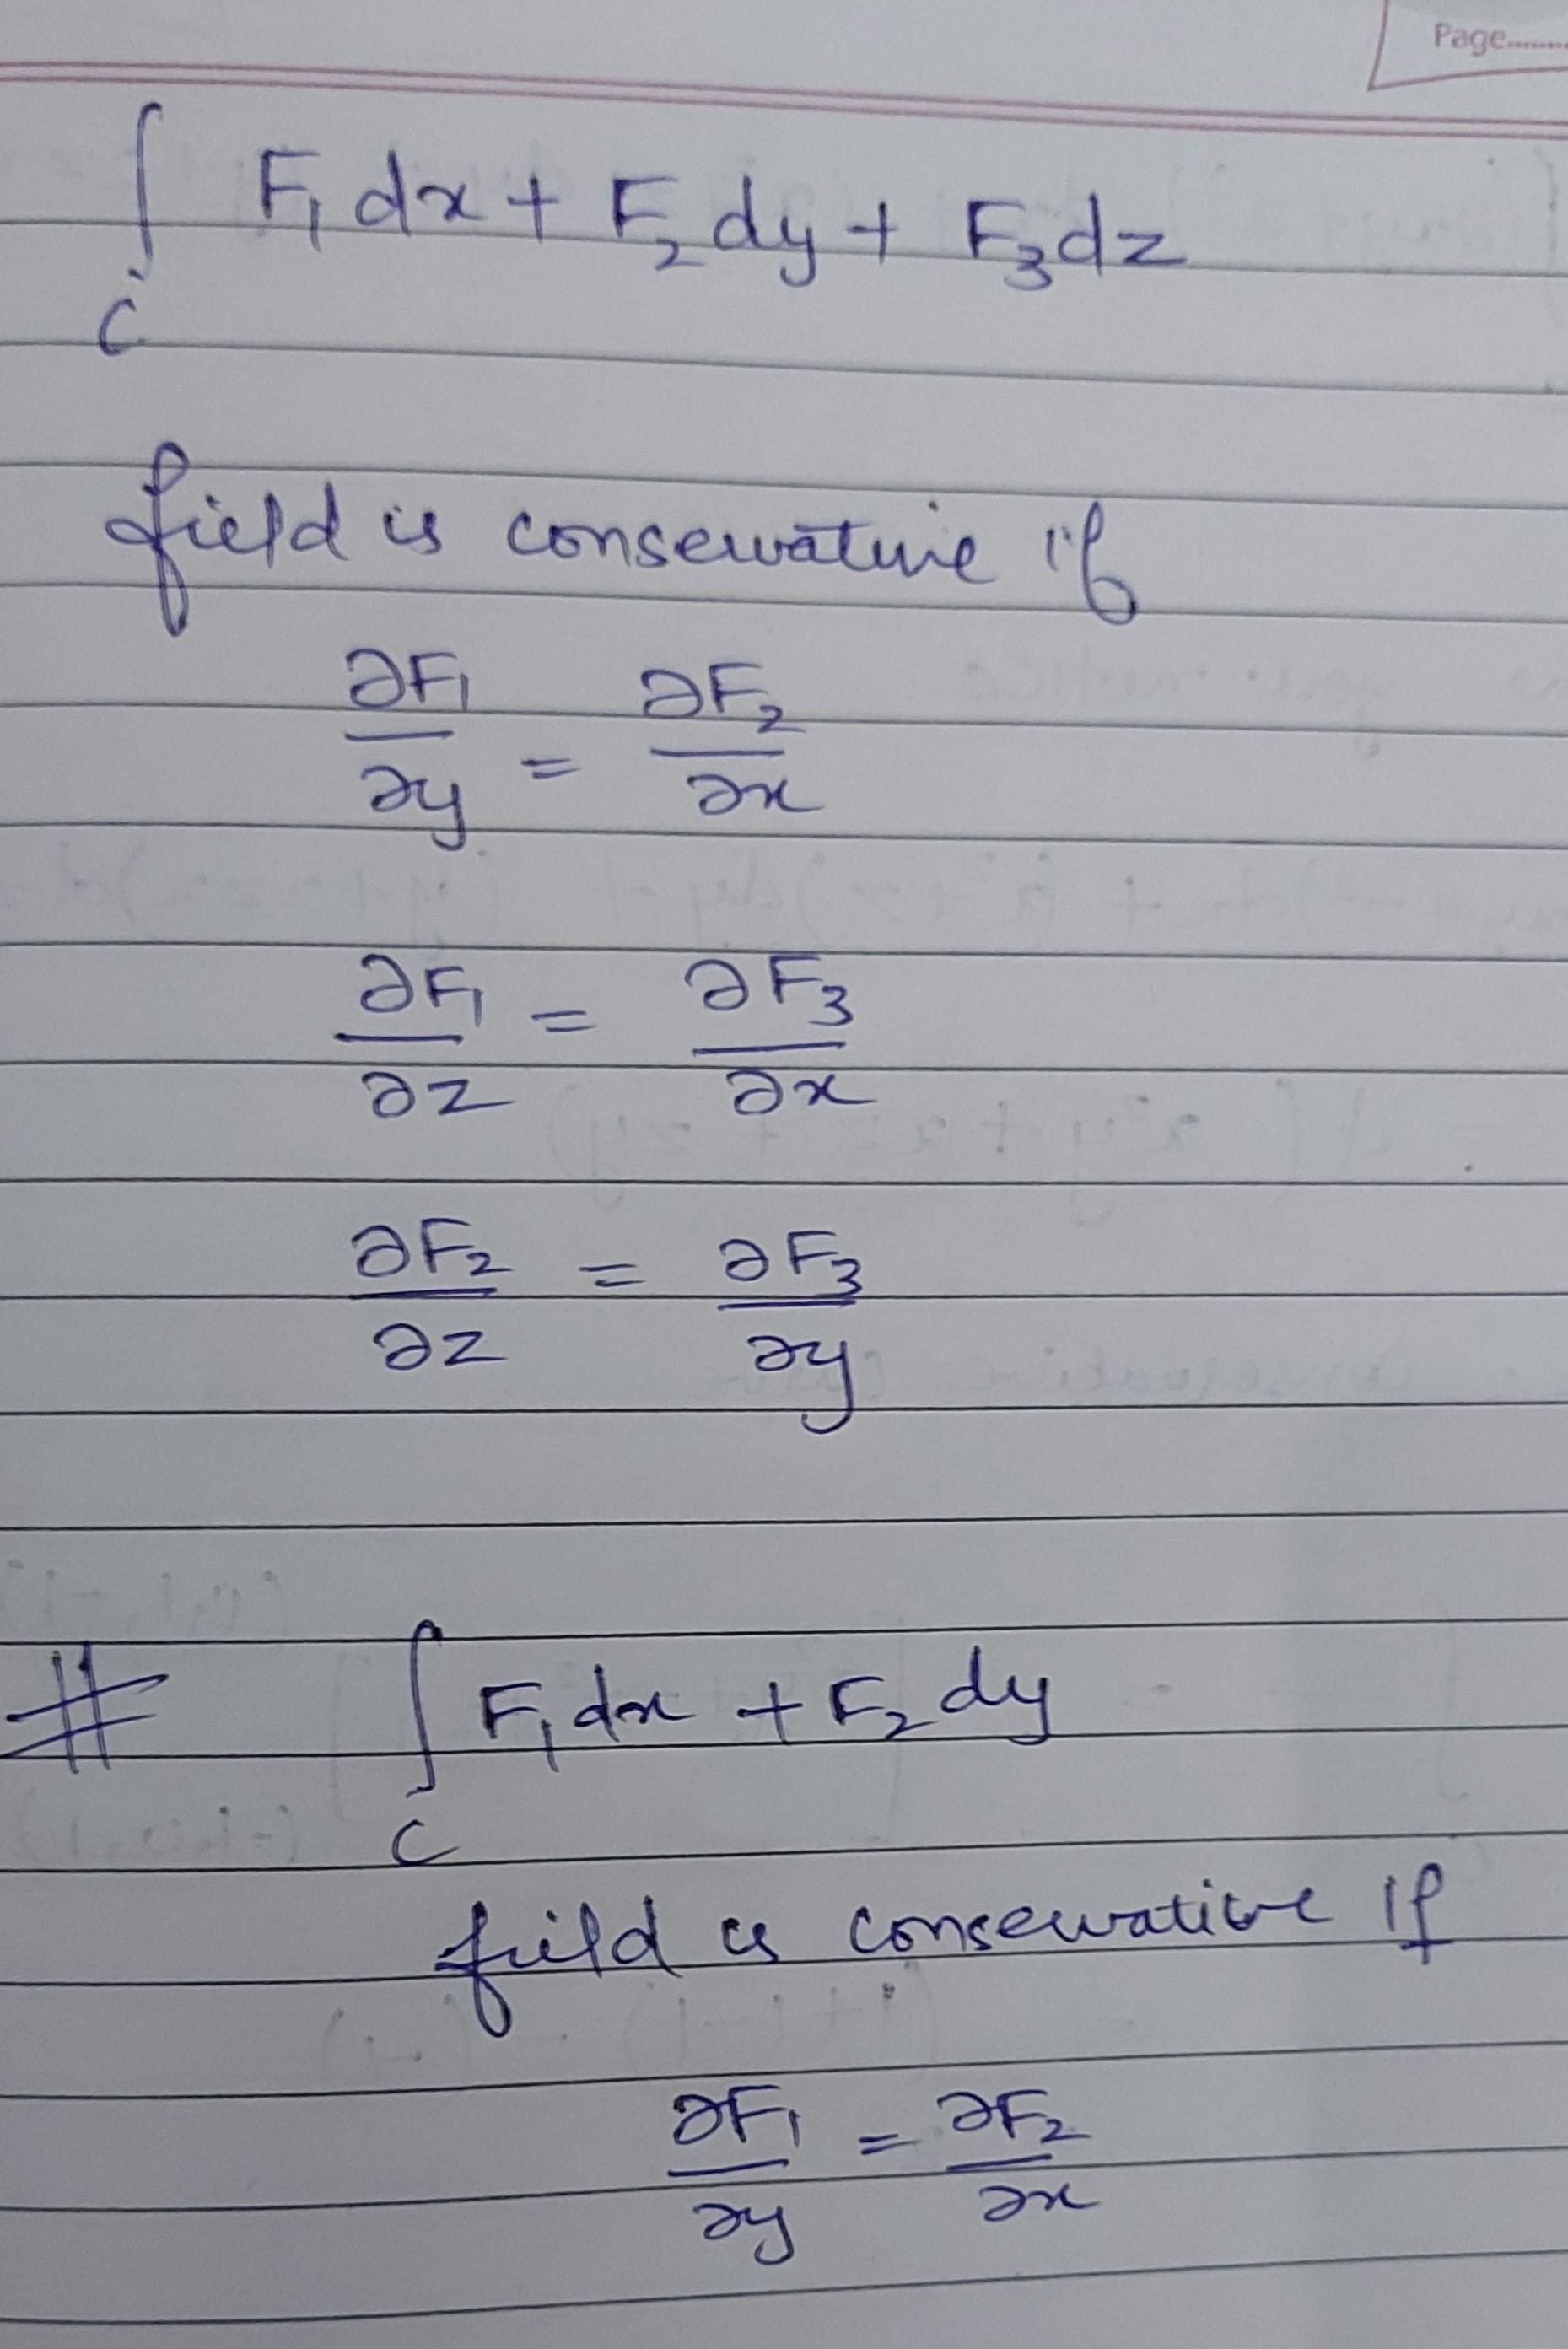 Page........
∫ F₁ dx + F₂ dy + F₃ dz
C
field is conservative if
∂F₁/∂y = ∂F₂/∂x
∂F₁/∂z = ∂F₃/∂x
∂F₂/∂z = ∂F₃/∂y
# ∫ F₁ dx + F₂ dy
C
field is conservative if
∂F₁/∂y = ∂F₂/∂x